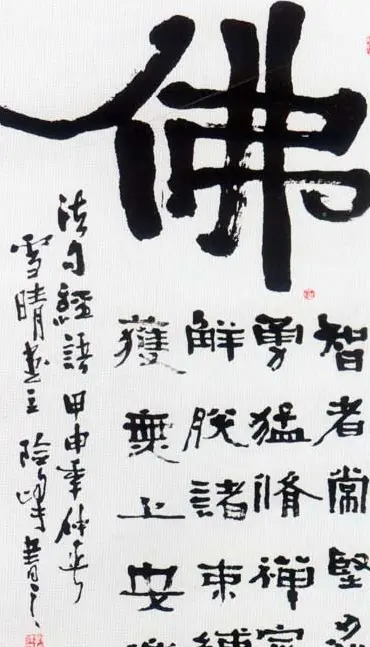 佛
智者常堅
勇猛脩禪定
解脫諸束縛
獲無上安
法句經語 甲申年仲春
雪晴主 險峰書